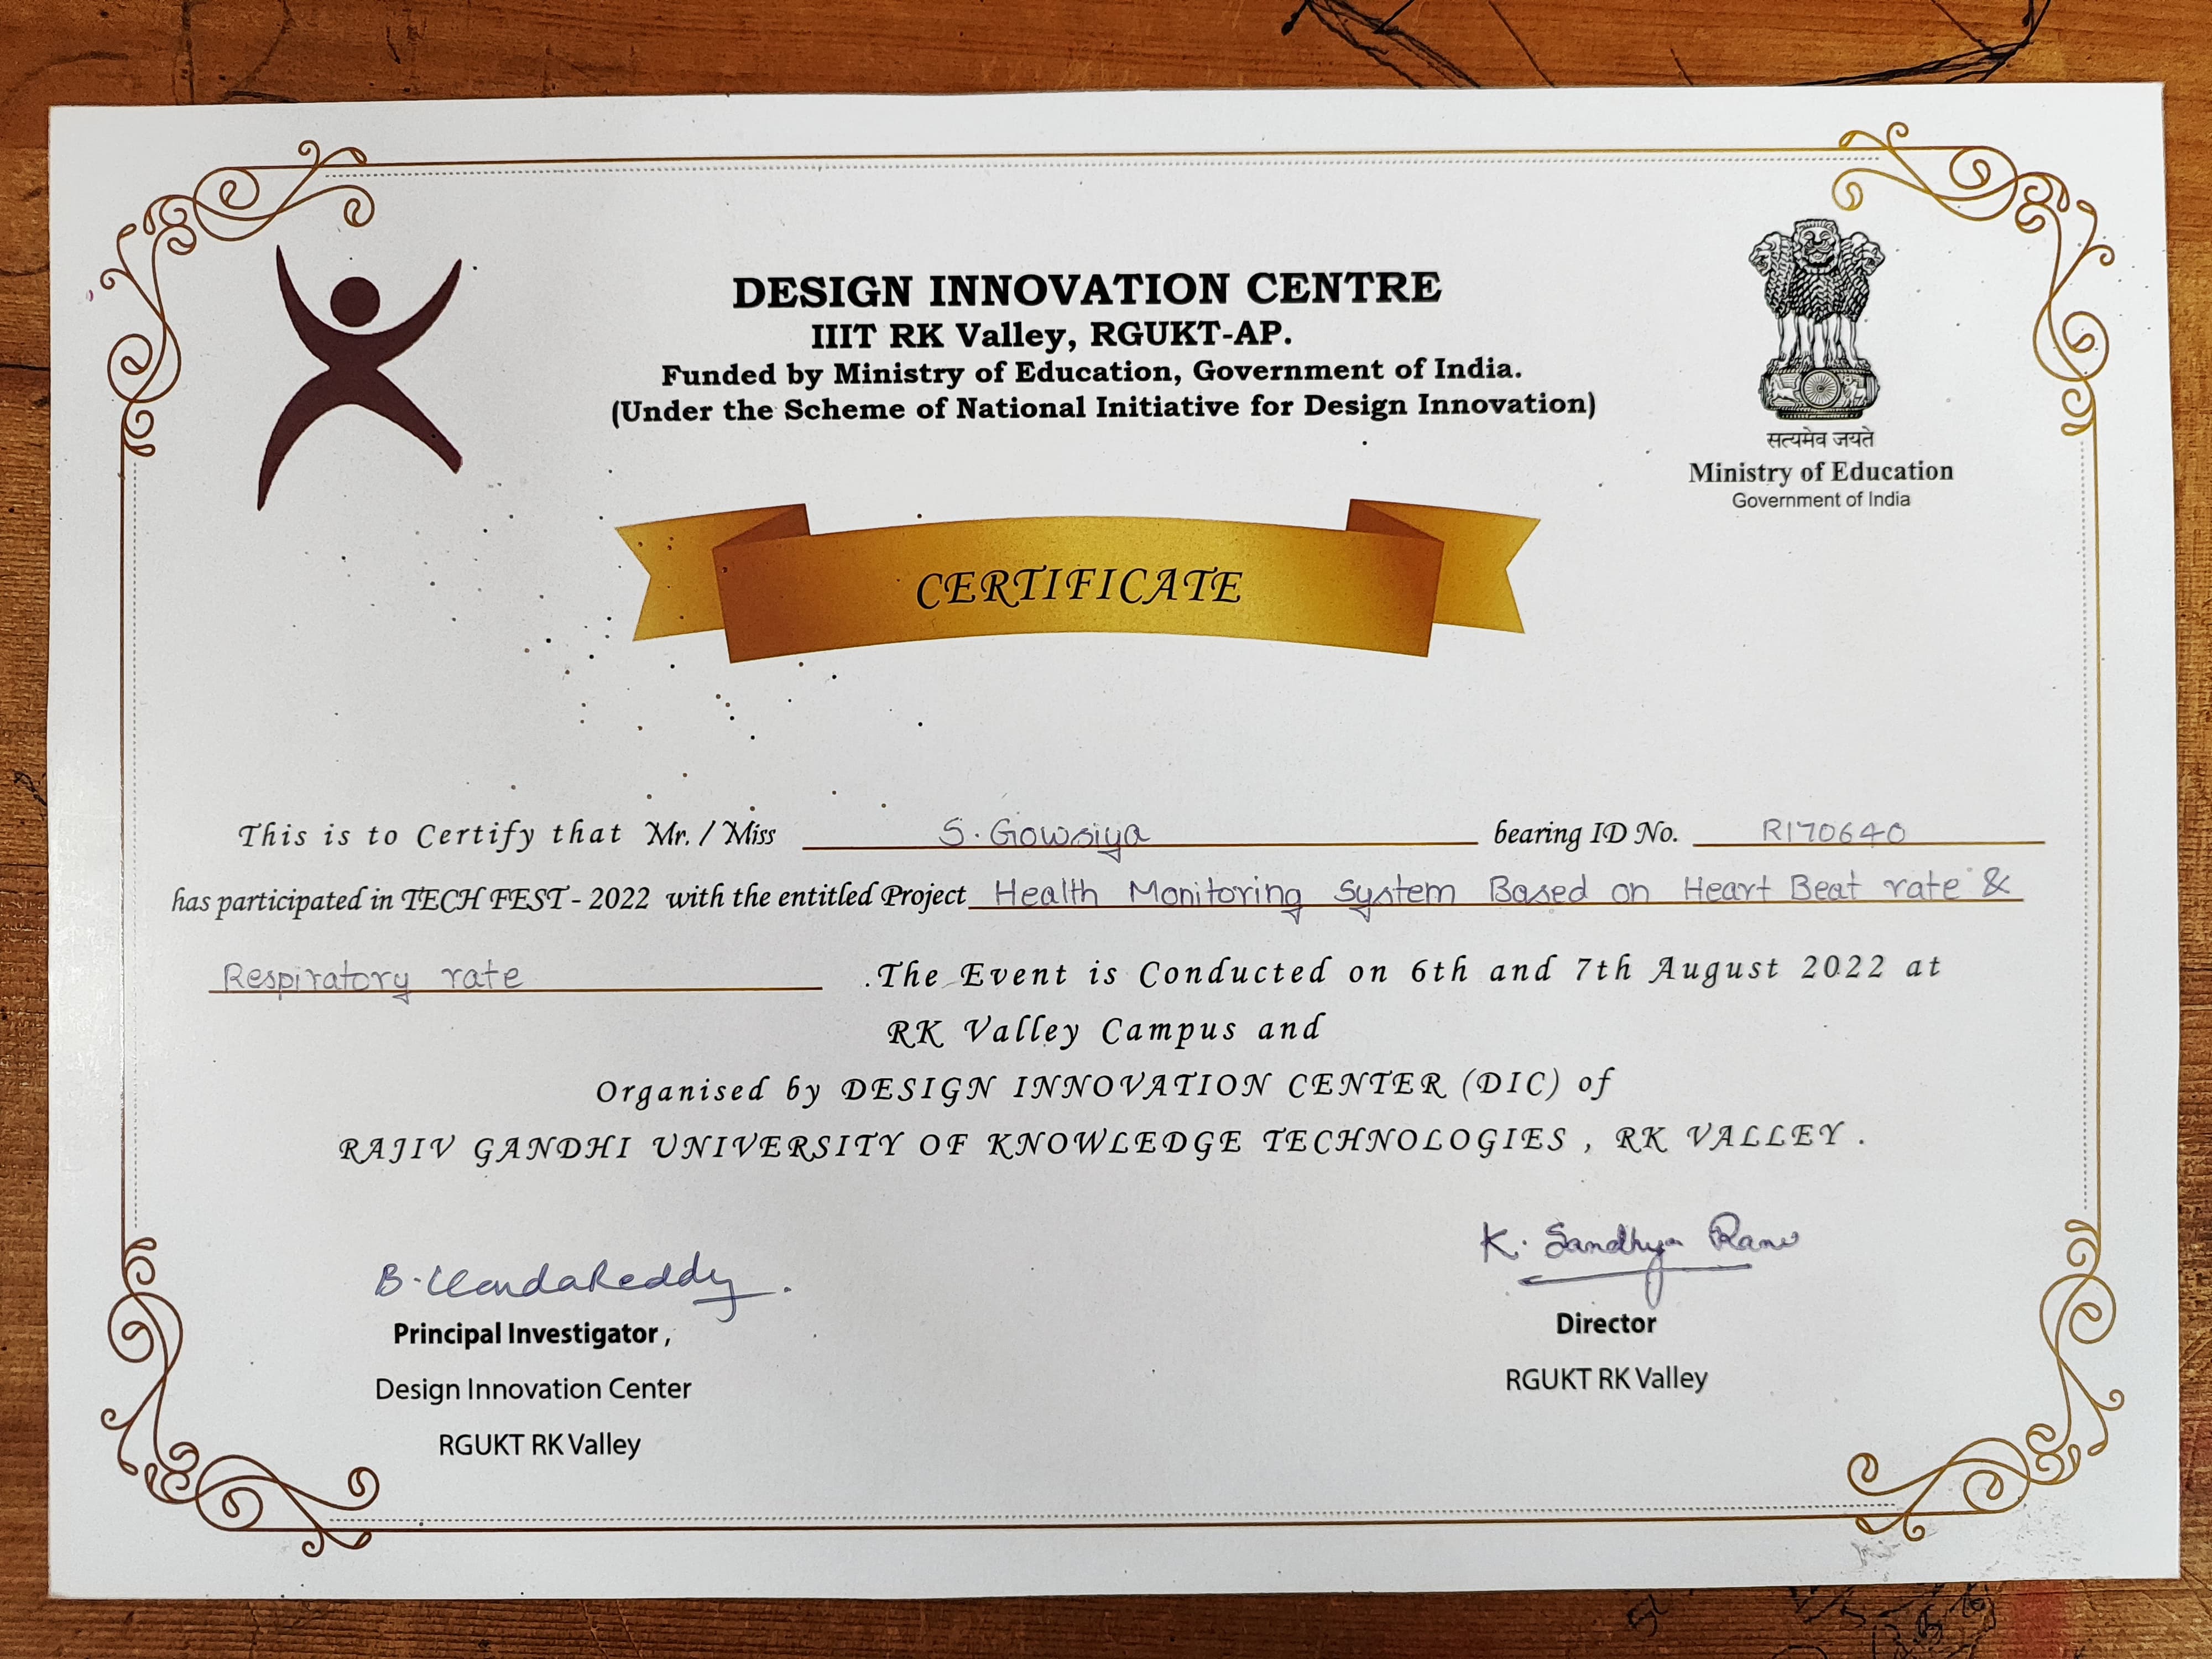 DESIGN INNOVATION CENTRE
IIIT RK Valley, RGUKT-AP.
Funded by Ministry of Education, Government of India.
(Under the Scheme of National Initiative for Design Innovation)
सत्यमेव जयते
Ministry of Education
Government of India
CERTIFICATE
This is to Certify that Mr. / Miss S. Gowsiya bearing ID No. R170640
has participated in TECH FEST - 2022 with the entitled Project Health Monitoring System Based on Heart Beat rate &
Respiratory rate .The Event is Conducted on 6th and 7th August 2022 at
RK Valley Campus and
Organised by DESIGN INNOVATION CENTER (DIC) of
RAJIV GANDHI UNIVERSITY OF KNOWLEDGE TECHNOLOGIES , RK VALLEY .
K. Sandhya Rani
B. Reddy
Principal Investigator ,
Design Innovation Center
RGUKT RK Valley
Director
RGUKT RK Valley